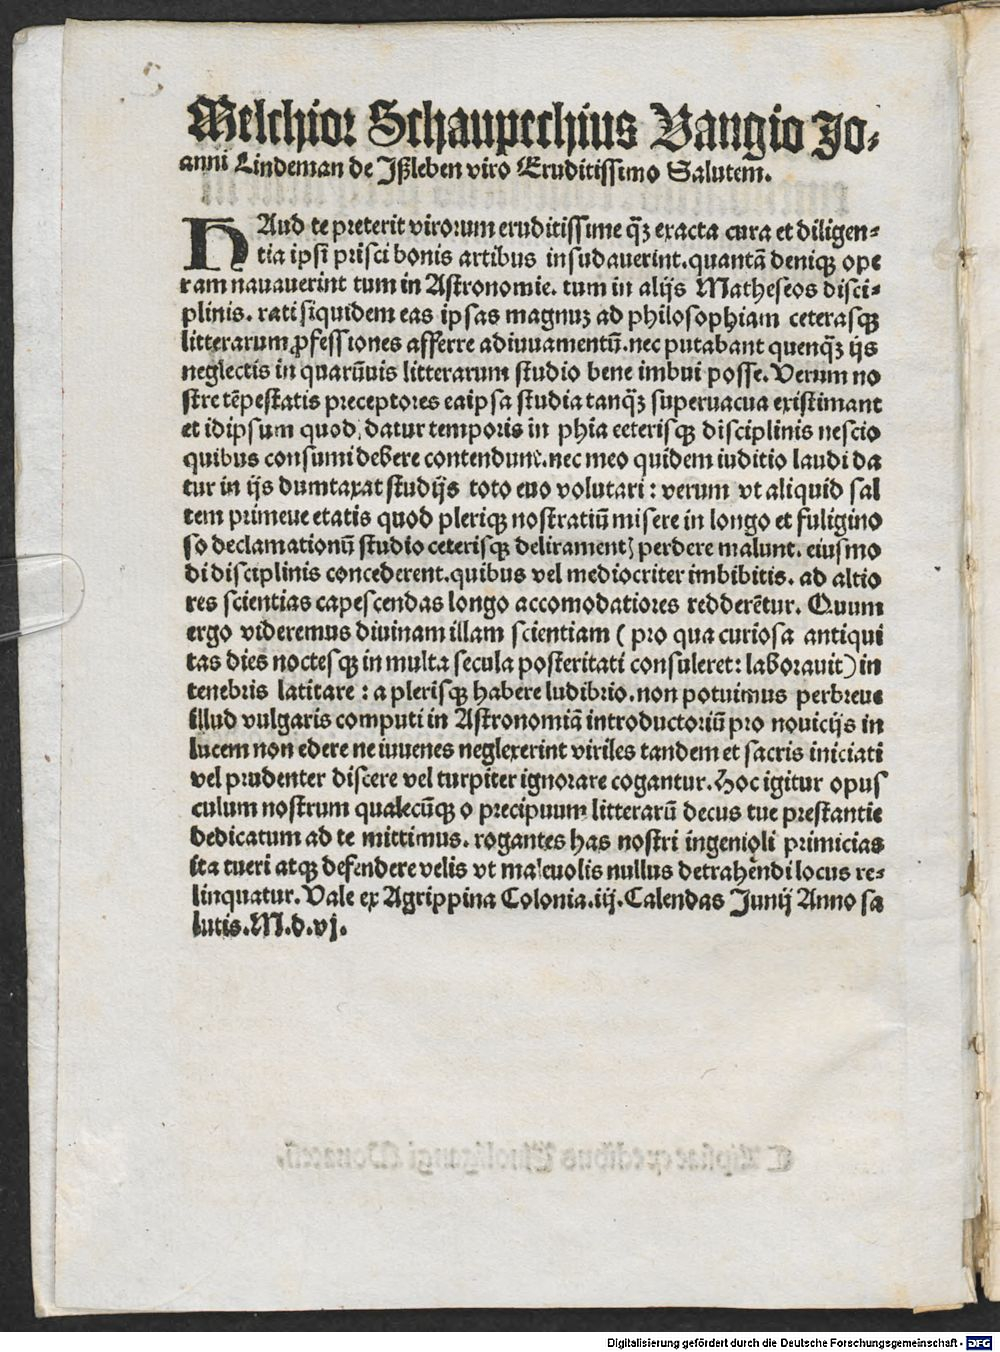 Melchior Schaupechius Vangio Jo-
anni Lindeman de Jßleben viro Eruditissimo Salutem.
HAud te preterit virorum eruditissime qꝫ exacta cura et diligen-
tia ipsi prisci bonis artibus insudauerint. quantã deniqꝫ ope
ram nauauerint tum in Astronomie. tum in alijs Matheseos disci-
plinis. rati siquidem eas ipsas magnuꝫ ad philosophiam ceterasqꝫ
litterarum ꝓfessiones afferre adiuuamentũ. nec putabant quenqꝫ̃ ijs
neglectis in quarũuis litterarum studio bene imbui posse. Verum no
stre tẽpestatis preceptores ea ipsa studia tanqꝫ̃ superuacua existimant
et id ipsum quod datur temporis in phia ceterisqꝫ disciplinis nescio
quibus consumi debere contendunt. nec meo quidem iuditio laudi da
tur in ijs dumtaxat studijs toto euo volutari : verum vt aliquid sal
tem primeue etatis quod pleriqꝫ nostratiũ misere in longo et fuligino
so declamationũ studio ceterisqꝫ deliramentꝭ perdere malunt. eiusmo
di disciplinis concederent. quibus vel mediocriter imbibitis. ad altio
res scientias capescendas longo accomodatiores redderẽtur. Quum
ergo videremus diuinam illam scientiam ( pro qua curiosa antiqui
tas dies noctesqꝫ in multa secula posteritati consuleret : laborauit ) in
tenebris latitare : a plerisqꝫ habere ludibrio. non potuimus perbreue
illud vulgaris computi in Astronomiã introductoriũ pro nouicijs in
lucem non edere ne iuuenes neglexerint viriles tandem et sacris iniciati
vel prudenter discere vel turpiter ignorare cogantur. Hoc igitur opus
culum nostrum qualecũqꝫ o precipuum litterarũ decus tue prestantie
dedicatum ad te mittimus. rogantes has nostri ingenioli primicias
ita tueri atqꝫ defendere velis vt maleuolis nullus detrahẽdi locus re-
linquatur. Vale ex Agrippina Colonia. iij. Calendas Junij Anno sa
lutis. M.d.vj.
Digitalisierung gefördert durch die Deutsche Forschungsgemeinschaft - DFG